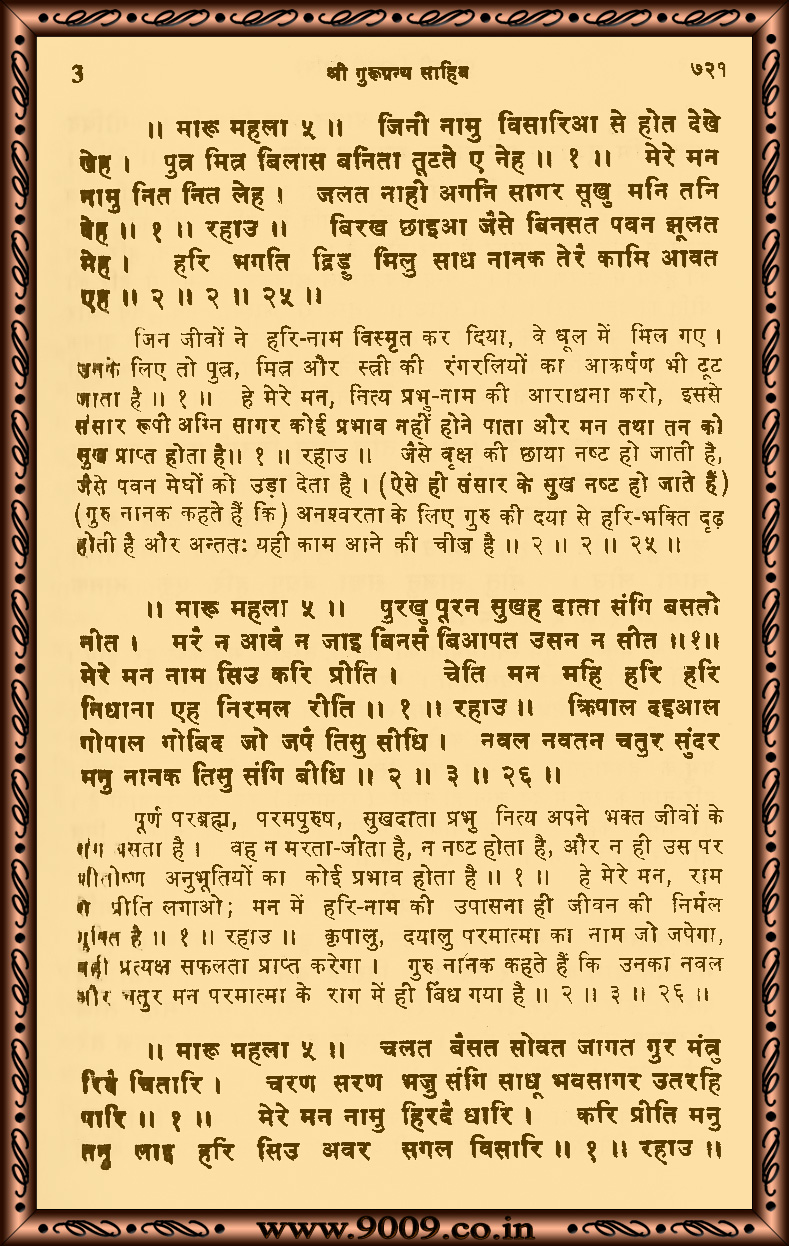 3 श्री गुरूग्रन्थ साहिब ७२१
॥ मारू महला ५ ॥ जिनी नामु विसारिआ से होत देखे
खेह । पुत्र मित्र बिलास बनिता तूटते ए नेह ॥ १ ॥ मेरे मन
नामु नित नित लेह । जलत नाही अगनि सागर सूखु मनि तनि
देह ॥ १ ॥ रहाउ ॥ बिरख छाइआ जैसे बिनसत पवन झूलत
मेह । हरि भगति द्रिड़ु मिलु साध नानक तेरै कामि आवत
एह ॥ २ ॥ २ ॥ २५ ॥
जिन जीवों ने हरि-नाम विस्मृत कर दिया, वे धूल में मिल गए ।
उनके लिए तो पुत्र, मित्र और स्त्री की रंगरलियों का आकर्षण भी टूट
जाता है ॥ १ ॥ हे मेरे मन, नित्य प्रभु-नाम की आराधना करो, इससे
संसार रूपी अग्नि सागर कोई प्रभाव नहीं होने पाता और मन तथा तन को
सुख प्राप्त होता है॥ १ ॥ रहाउ ॥ जैसे वृक्ष की छाया नष्ट हो जाती है,
जैसे पवन मेघों को उड़ा देता है । (ऐसे ही संसार के सुख नष्ट हो जाते हैं)
(गुरु नानक कहते हैं कि) अनश्वरता के लिए गुरु की दया से हरि-भक्ति दृढ़
होती है और अन्ततः यही काम आने की चीज़ है ॥ २ ॥ २ ॥ २५ ॥
॥ मारू महला ५ ॥ पुरखु पूरन सुखह दाता संगि बसतो
नीत । मरै न आवै न जाइ बिनसै बिआपत उसन न सीत ॥१॥
मेरे मन नाम सिउ करि प्रीति । चेति मन महि हरि हरि
निधाना एह निरमल रीति ॥ १ ॥ रहाउ ॥ क्रिपाल दइआल
गोपाल गोबिद जो जपै तिसु सीधि । नवल नवतन चतुर सुंदर
मनु नानक तिसु संगि बीधि ॥ २ ॥ ३ ॥ २६ ॥
पूर्ण परब्रह्म, परमपुरुष, सुखदाता प्रभु नित्य अपने भक्त जीवों के
संग बसता है । वह न मरता-जीता है, न नष्ट होता है, और न ही उस पर
शीतोष्ण अनुभूतियों का कोई प्रभाव होता है ॥ १ ॥ हे मेरे मन, राम
से प्रीति लगाओ; मन में हरि-नाम की उपासना ही जीवन की निर्मल
युक्ति है ॥ १ ॥ रहाउ ॥ कृपालु, दयालु परमात्मा का नाम जो जपेगा,
वही प्रत्यक्ष सफलता प्राप्त करेगा । गुरु नानक कहते हैं कि उनका नवल
और चतुर मन परमात्मा के राग में ही बिंध गया है ॥ २ ॥ ३ ॥ २६ ॥
॥ मारू महला ५ ॥ चलत बैसत सोवत जागत गुर मंत्रु
रिदै चितारि । चरण सरण भजु संगि साधू भवसागर उतरहि
पारि ॥ १ ॥ मेरे मन नामु हिरदै धारि । करि प्रीति मनु
तनु लाइ हरि सिउ अवर सगल विसारि ॥ १ ॥ रहाउ ॥
www.9009.co.in